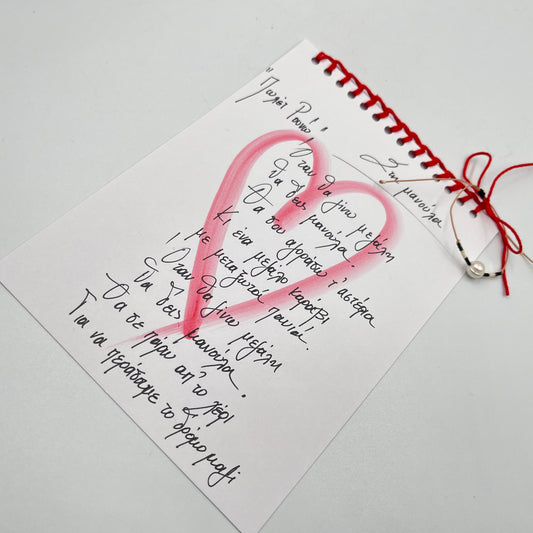 "Πωλλέτ Ρουνώ"
Στη μανούλα
Όταν θα γίνω μεγάλη
θα δεις μανούλα.
Θα σου αγοράσω τ' αστέρια
Κι ένα μεγάλο καράβι
με μεταξωτά πανιά!
Όταν θα γίνω μεγάλη
θα δεις μανούλα.
Θα σε πάρω απ' το χέρι
Για να περάσουμε το δρόμο μαζί